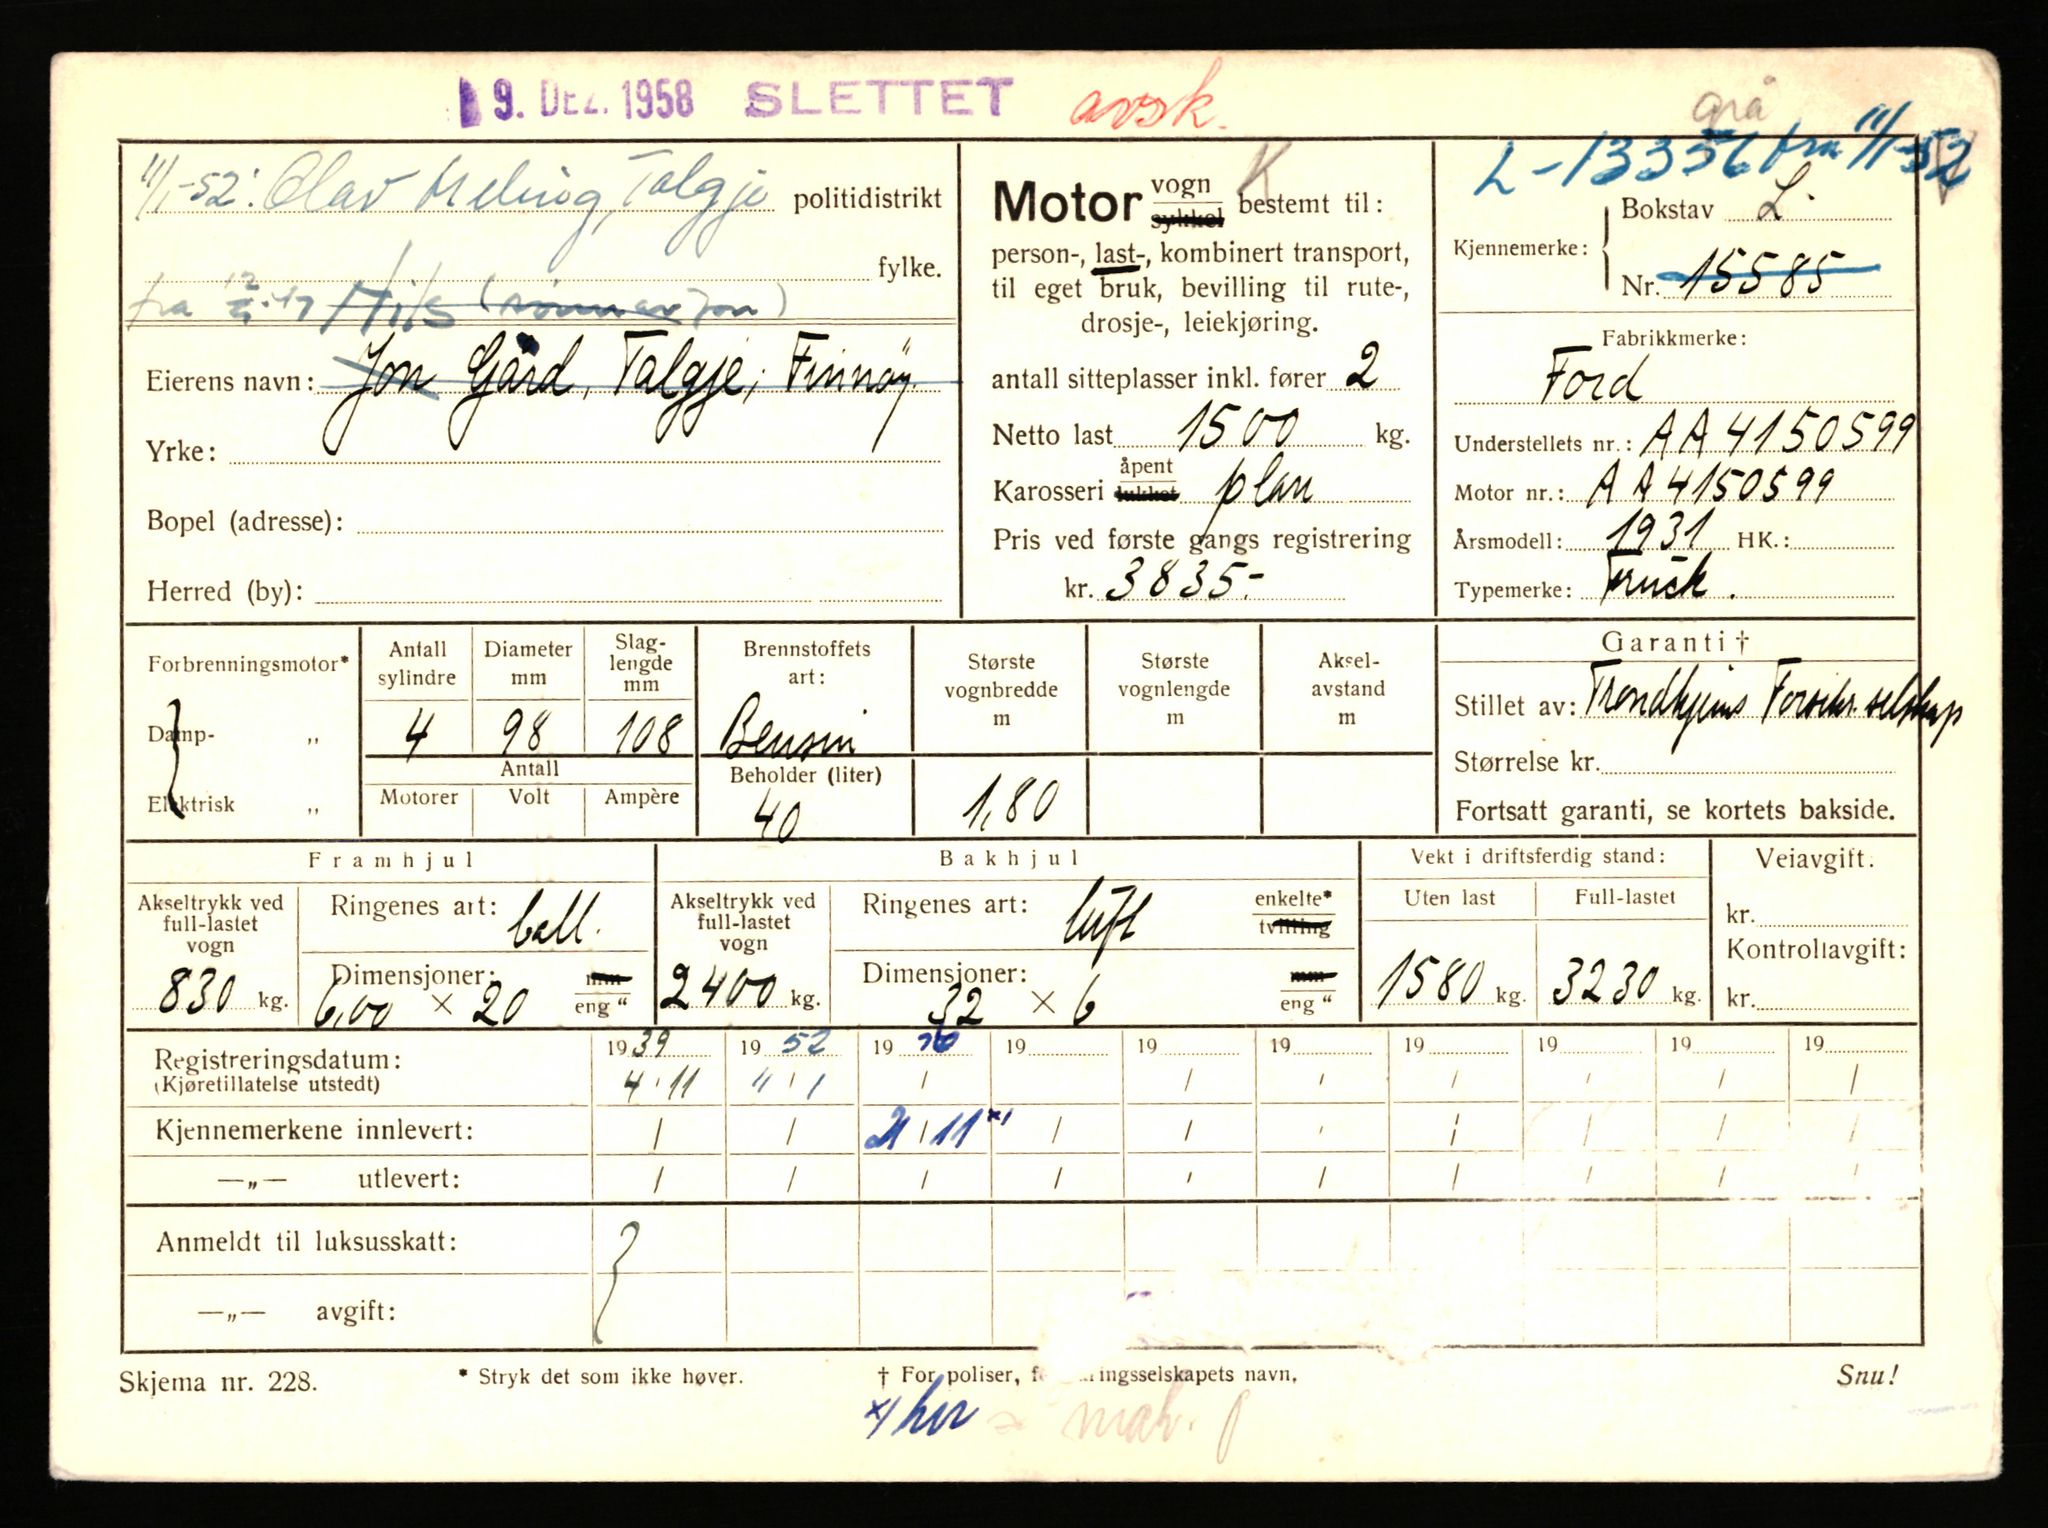 9. DEZ. 1958 SLETTET avsk.
grå
L-13356 fra 11/1-52
11/1-52: Olav Meling, Talgje politidistrikt
fylke.
fra
Eierens navn: Jon Gård, Talgje, Finnöy.
Yrke:
Bopel (adresse):
Herred (by):
K
Motor vogn sykkel bestemt til:
person-, last-, kombinert transport,
til eget bruk, bevilling til rute-,
drosje-, leiekjøring.
antall sitteplasser inkl. fører 2
Netto last 1500 kg.
Karosseri åpent lukket plan
Pris ved første gangs registrering
kr. 3835.-
Kjennemerke: Bokstav L.
Nr. 15585
Fabrikkmerke:
Ford
Understellets nr.: AA4150599
Motor nr.: AA4150599
Årsmodell: 1931 HK.:
Typemerke: Truck.
Forbrenningsmotor*
Damp- „
Elektrisk „
Antall sylindre
4
Diameter mm
98
Slag-lengde mm
108
Antall
Motorer Volt Ampère
Brennstoffets art:
Bensin
Beholder (liter)
40
Største vognbredde m
1,80
Største vognlengde m
Aksel-avstand m
Garanti †
Stillet av: Trondhjems Forsikr. selskap
Størrelse kr.
Fortsatt garanti, se kortets bakside.
Framhjul
Akseltrykk ved full-lastet vogn
830 kg.
Ringenes art: ball.
Dimensjoner: 6,00 x 20 mm eng "
Bakhjul
Akseltrykk ved full-lastet vogn
2400 kg.
Ringenes art: luft enkelte* tvilling
Dimensjoner: 32 x 6 mm eng "
Vekt i driftsferdig stand:
Uten last Full-lastet
1580 kg. 3230 kg.
Veiavgift.
kr.
Kontrollavgift:
kr.
Registreringsdatum: 1939 1952 19 19 19 19 19 19 19 19
(Kjøretillatelse utstedt) 4/11 11/1
Kjennemerkene innlevert: 21/11 x)
—„— utlevert:
Anmeldt til luksusskatt:
—„— avgift:
Skjema nr. 228.
* Stryk det som ikke høver.
† For poliser, ringsselskapets navn.
Snu!
x) her